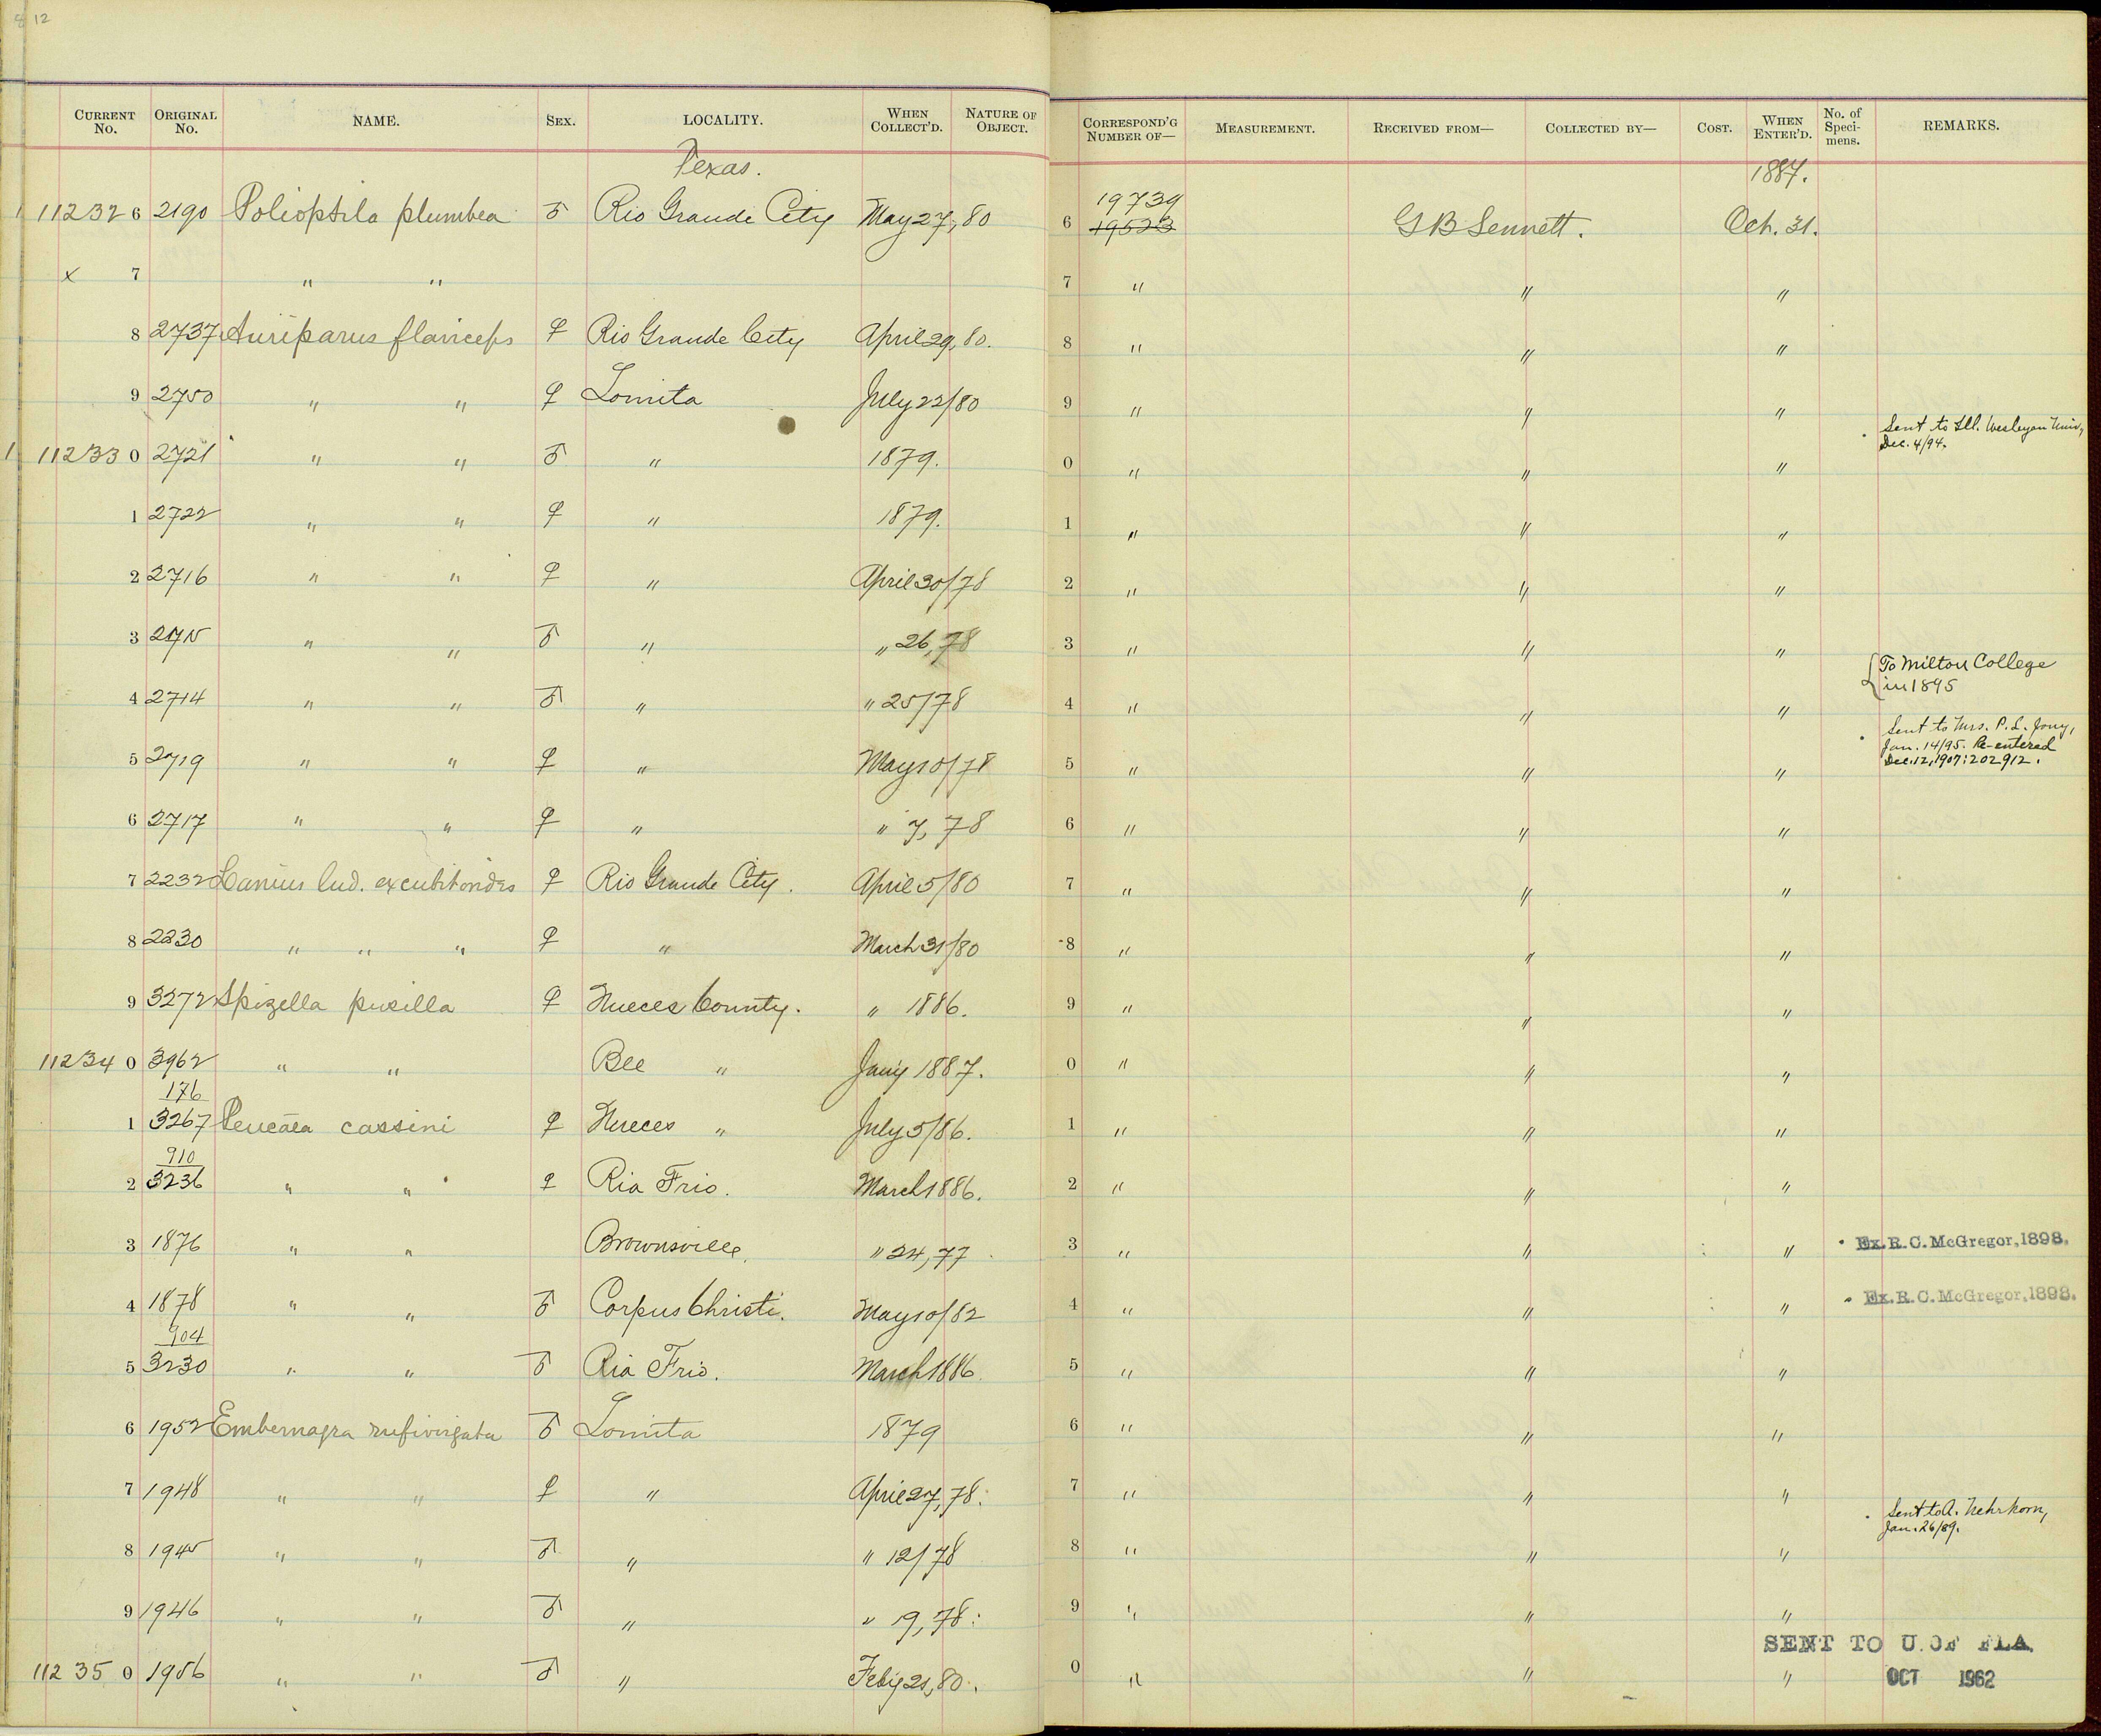 12
CURRENT No. ORIGINAL No. NAME. SEX. LOCALITY. WHEN COLLECT'D. NATURE OF OBJECT. CORRESPOND'G NUMBER OF— MEASUREMENT. RECEIVED FROM— COLLECTED BY— COST. WHEN ENTER'D. No. of Speci-mens. REMARKS.
Texas. 1887.
19739
1 11232 6 2190 Polioptila plumbea ♂ Rio Grande City May 27, 80 6 19523 G B Sennett. Oct. 31.
x 7 " " 7 " " "
8 2737 Auriparus flaviceps ♀ Rio Grande City April 29, 80. 8 " " "
9 2750 " " ♀ Lomita July 22/80 9 " " "
Sent to Ill. Wesleyan Univ,
Dec. 4/94.
1 11233 0 2721 " " ♂ " 1879. 0 " " "
1 2722 " " ♀ " 1879. 1 " " "
2 2716 " " ♀ " April 30/78 2 " " "
3 2715 " " ♂ " " 26, 78 3 " " "
{ To Milton College
in 1895
4 2714 " " ♂ " " 25/78 4 " " "
Sent to Mrs. P. L. Jouy,
Jan. 14/95. Re-entered
Dec. 12, 1907: 202912.
5 2719 " " ♀ " May 10/78 5 " " "
6 2717 " " ♀ " " 7, 78 6 " " "
7 2232 Lanius lud. excubitorides ♀ Rio Grande City. April 5/80 7 " " "
8 2230 " " " ♀ " March 31/80 8 " " "
9 3272 Spizella pusilla ♀ Nueces County. " 1886. 9 " " "
11234 0 3962 " " Bee " Jany 1887. 0 " " "
176
1 3267 Peucaea cassini ♀ Nueces " July 5/86. 1 " " "
910
2 3236 " " ♀ Ria Frio. March 1886. 2 " " "
3 1876 " " Brownsville. " 24, 77 3 " " " Ex. R. C. McGregor, 1898.
4 1878 " " ♂ Corpus Christi. May 10/82 4 " " " Ex. R. C. McGregor, 1898.
904
5 3230 " " ♂ Ria Frio. March 1886. 5 " " "
6 1952 Embernagra rufivirgata ♂ Lomita 1879 6 " " "
7 1948 " " ♀ " April 27, 78. 7 " " "
Sent to A. Nehrkorn,
Jan. 26/89.
8 1945 " " ♂ " " 12/78 8 " " "
9 1946 " " ♂ " " 19, 78. 9 " " "
SENT TO U. OF FLA.
11235 0 1956 " " ♂ " Feby 21, 80. 0 " " " OCT 1962